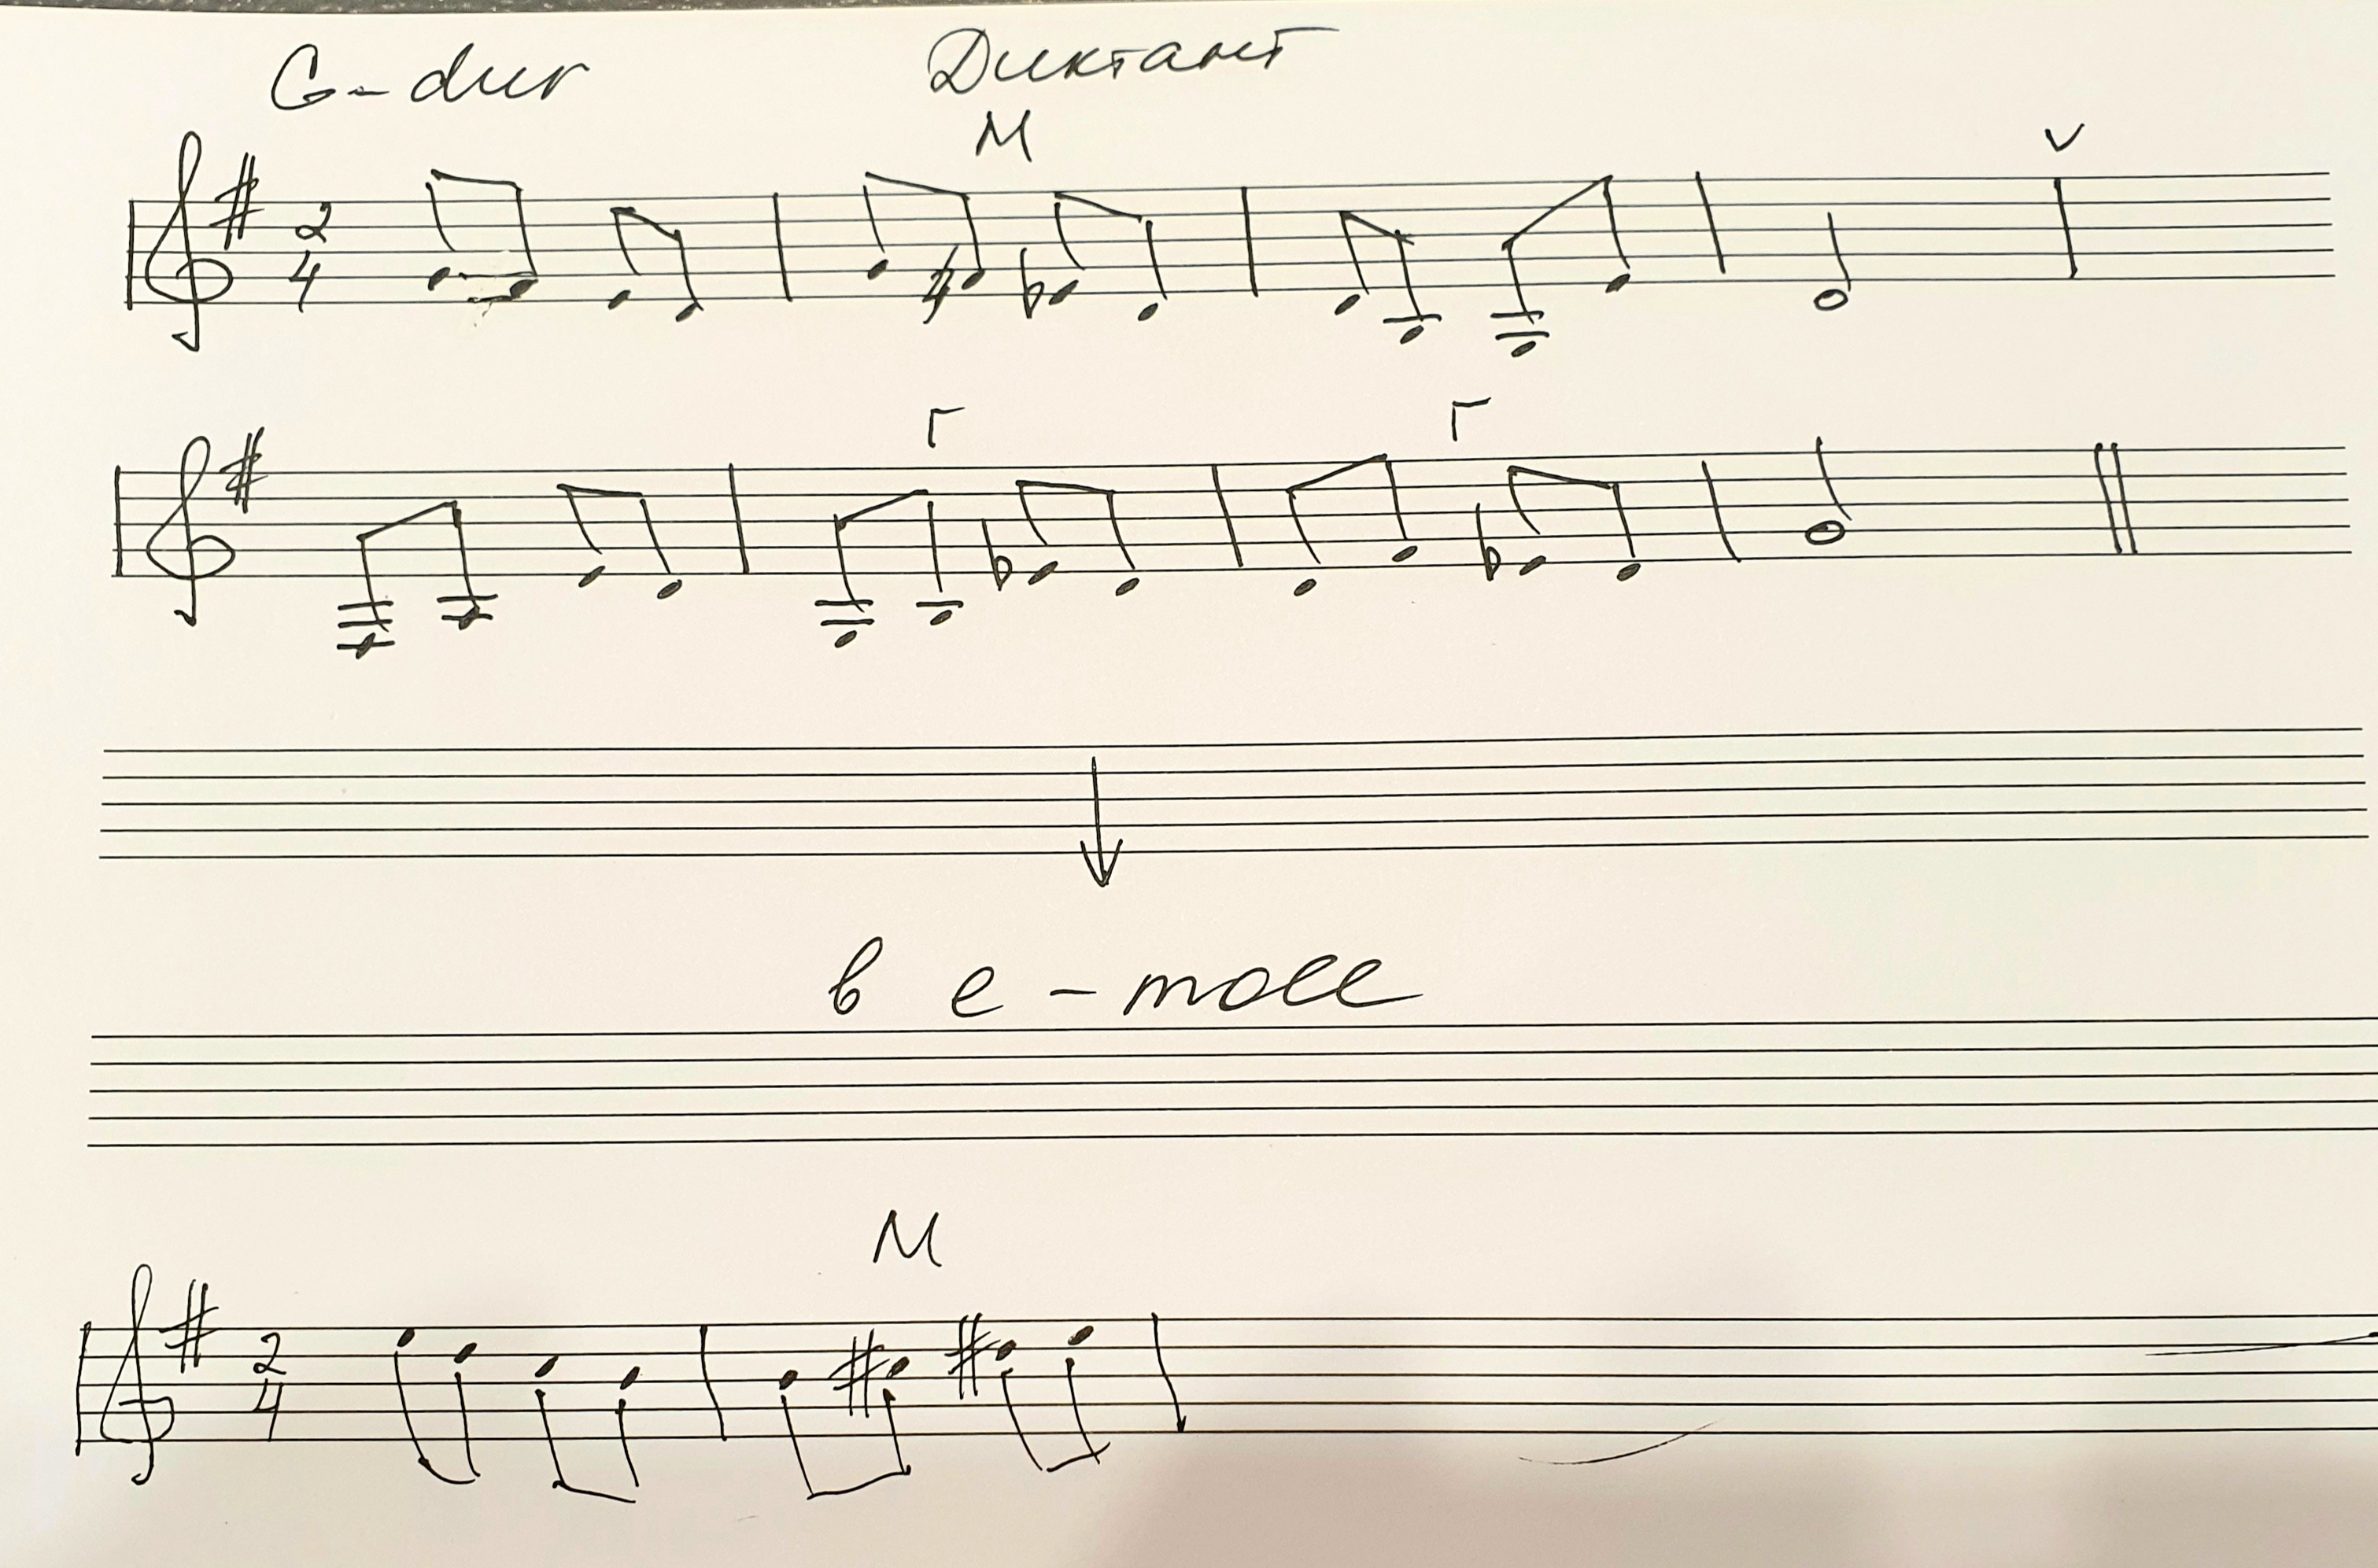 G-dur Диктант
М V
2
4
Г Г
в e-moll
М
2
4